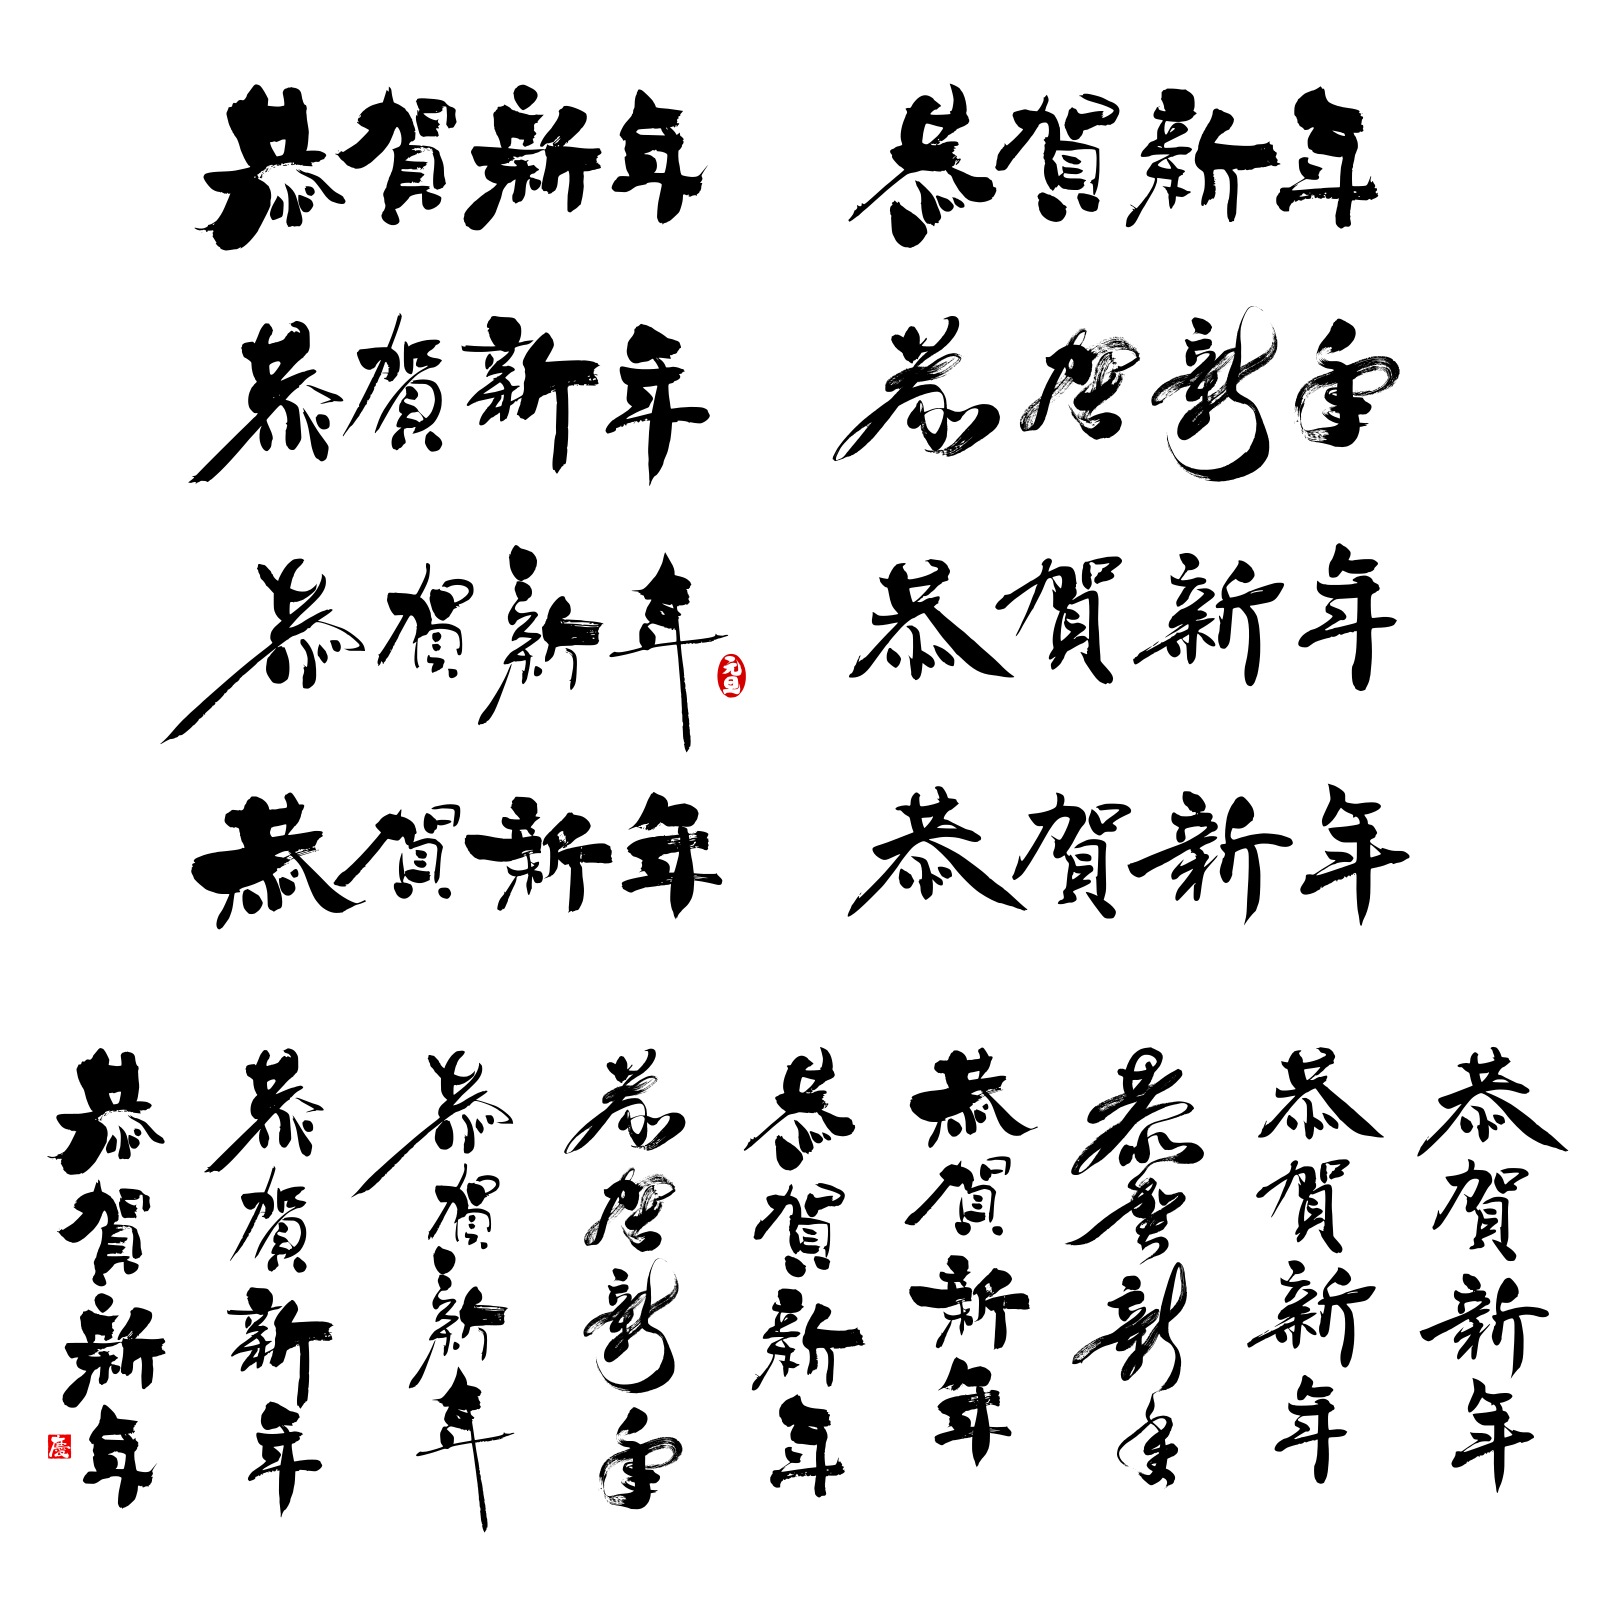 恭賀新年
恭賀新年
恭賀新年
恭賀新年
恭賀新年
元旦
恭賀新年
恭賀新年
恭賀新年
恭賀新年
慶
恭賀新年
恭賀新年
恭賀新年
恭賀新年
恭賀新年
恭賀新年
恭賀新年
恭賀新年